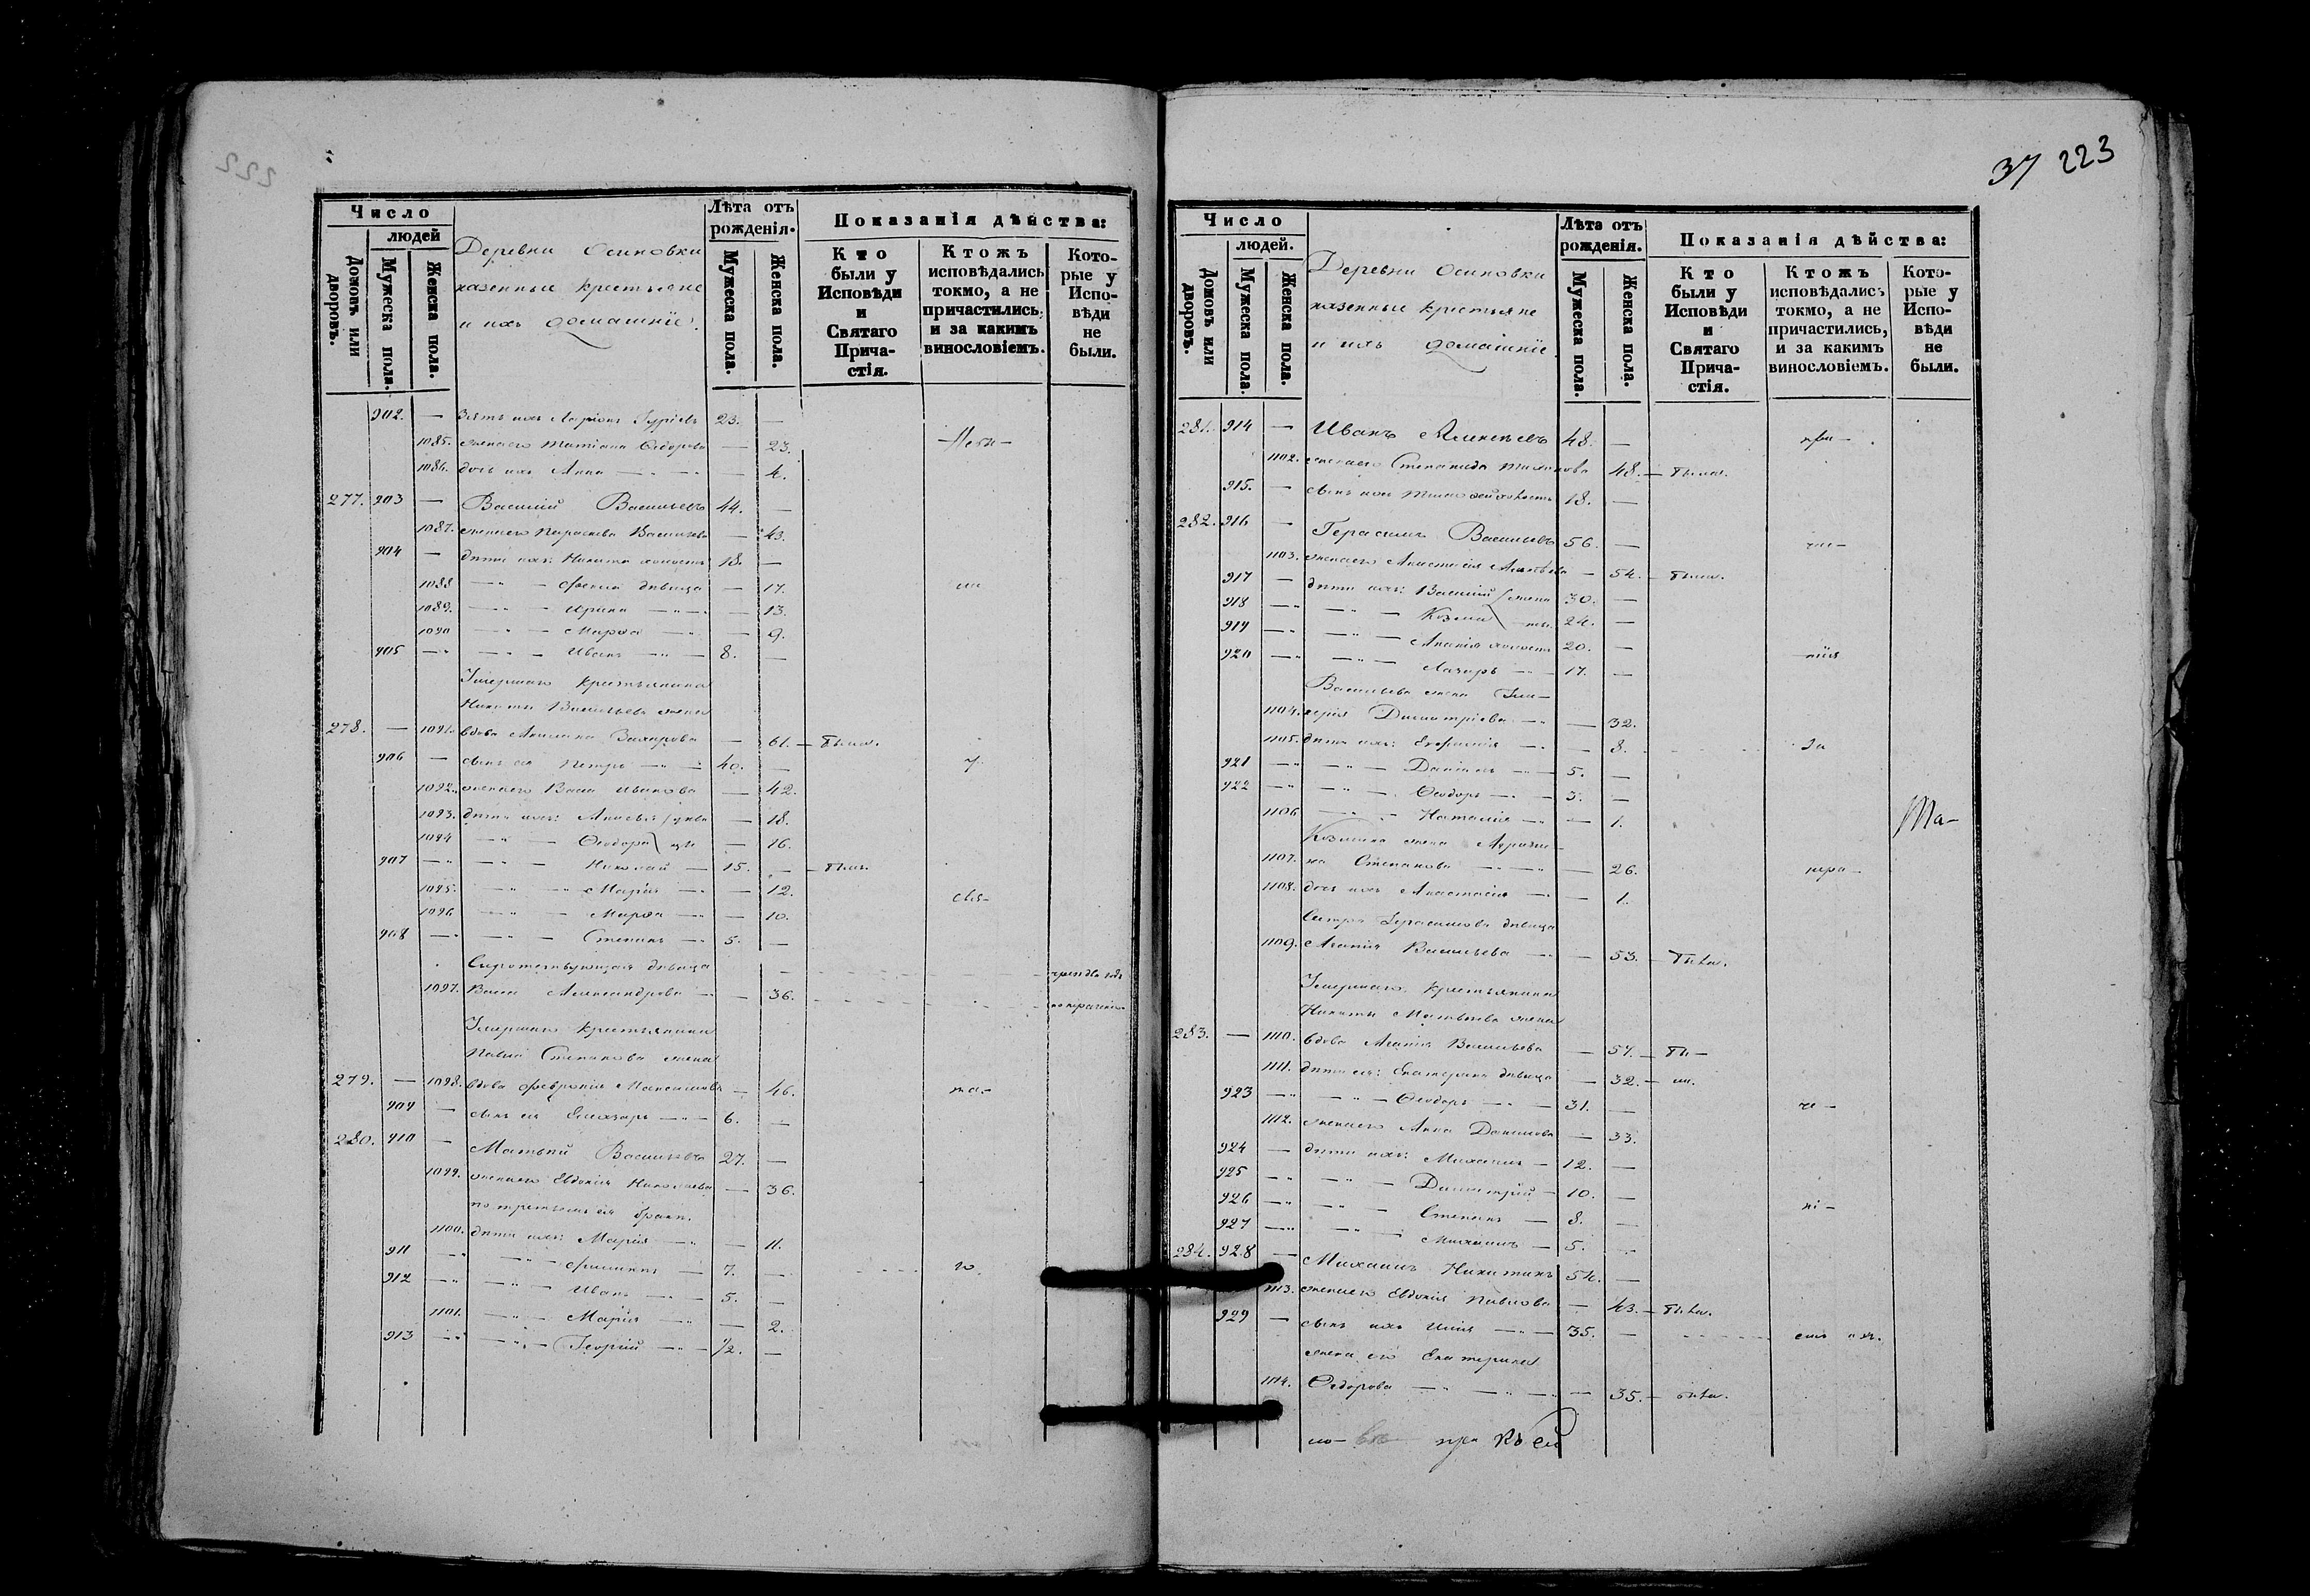 222
Число
людей
Домовъ или дворовъ.
Мужеска пола.
Женска пола.
Деревни Осиновки
казенные крестьяне
и ихъ домашніе.
Лѣта отъ рожденія.
Мужеска пола.
Женска пола.
Показанія дѣйства:
Кто были у Исповѣди и Святаго Причастія.
Ктожъ исповѣдались токмо, а не причастились, и за какимъ винословіемъ.
Которые у Исповѣди не были.
902. — зять ихъ Ларіонъ Гурьевъ 23. —
1085. жена его Татіана Ѳедорова — 23.
1086. дочь ихъ Анна — 4.
277. 903 — Василій Васильевъ 44. —
1087. жена его Параскева Васильева — 43.
904 — дѣти ихъ: Никита холостъ 18. —
1088 — девица — 17.
1089. — Ирина — 13.
1090 — Марѳа — 9.
905 — Иванъ — 8. —
Умершаго крестьянина
Никиты Васильева жена
278. — 1091. вдова Акилина Захарова — 61. — была.
906 — сынъ ея Петръ — 40. —
1092. жена его Васса Иванова — 42.
1093. дѣти ихъ: — 18.
1094 — Ѳеодора — 16.
907 — Николай — 15. — былъ.
1095. — Марія — 12.
1096 — Марѳа — 10.
908 — Степанъ — 5. —
девица
1097. Васса Александрова — 36.
Умершаго крестьянина
Павла Степанова жена
279. — 1098. вдова Февронія Максимова — 46.
909 — сынъ ея Елеазаръ — 6. —
280. 910 — Матвѣй Васильевъ 27. —
1099. жена его Евдокія Николаева — 36.
по третьему ея браку.
1100. дѣти ихъ: Марія — 11.
911 — Филиппъ — 7. —
912 — Иванъ — 5. —
1101. — Марія — 2.
913 — Георгій — 1/2. —
37 223
Число
людей.
Домовъ или дворовъ.
Мужеска пола.
Женска пола.
Деревни Осиновки
казенные крестьяне
и ихъ домашніе.
Лѣта отъ рожденія.
Мужеска пола.
Женска пола.
Показанія дѣйства:
Кто были у Исповѣди и Святаго Причастія.
Ктожъ исповѣдались токмо, а не причастились, и за какимъ винословіемъ.
Которые у Исповѣди не были.
281. 914 — Иванъ Алексѣевъ 48. — при-
1102. жена его Степанида — 48. — была.
915. — сынъ ихъ Тимоѳей холостъ 18. —
282. 916 — Герасимъ Васильевъ 56. —
1103. жена его Анастасія — 54. — была.
917 — дѣти ихъ: Василій 30. —
918 — Козма 24. —
919 — Ананія холостъ 20. —
920 — Лазарь — 17. —
Васильева жена Гли-
1104. керія Димитріева — 32.
1105. дѣти ихъ: Евфимія — 8. за
921 — Даніилъ — 5. —
922 — Ѳеодоръ — 3. —
1106 — Наталія — 1.
Козмина жена
1107. Степанова — 26.
1108. дочь ихъ Анастасія — 1.
Сестра Герасимова девица
1109. Агапія Васильева — 53. — была.
Умершаго крестьянина
Никиты Матвѣева жена
283. — 1110. вдова Агапія Васильева — 57. — бы-
1111. дѣти ея: Екатерина девица — 32. — ли.
923 — Ѳеодоръ — 31. —
1112. жена его Анна Данилова — 33.
924 — дѣти ихъ: Михаилъ — 12. —
925 — Димитрій — 10. —
926 — Степанъ — 8. —
927 — Михаилъ — 5. —
284. 928 — Михаилъ Никитинъ 54. —
1113. жена его Евдокія Павлова — 43. — была.
929 — сынъ ихъ Илія — 35. —
жена его Екатерина
1114. Ѳедорова — 35. — была.